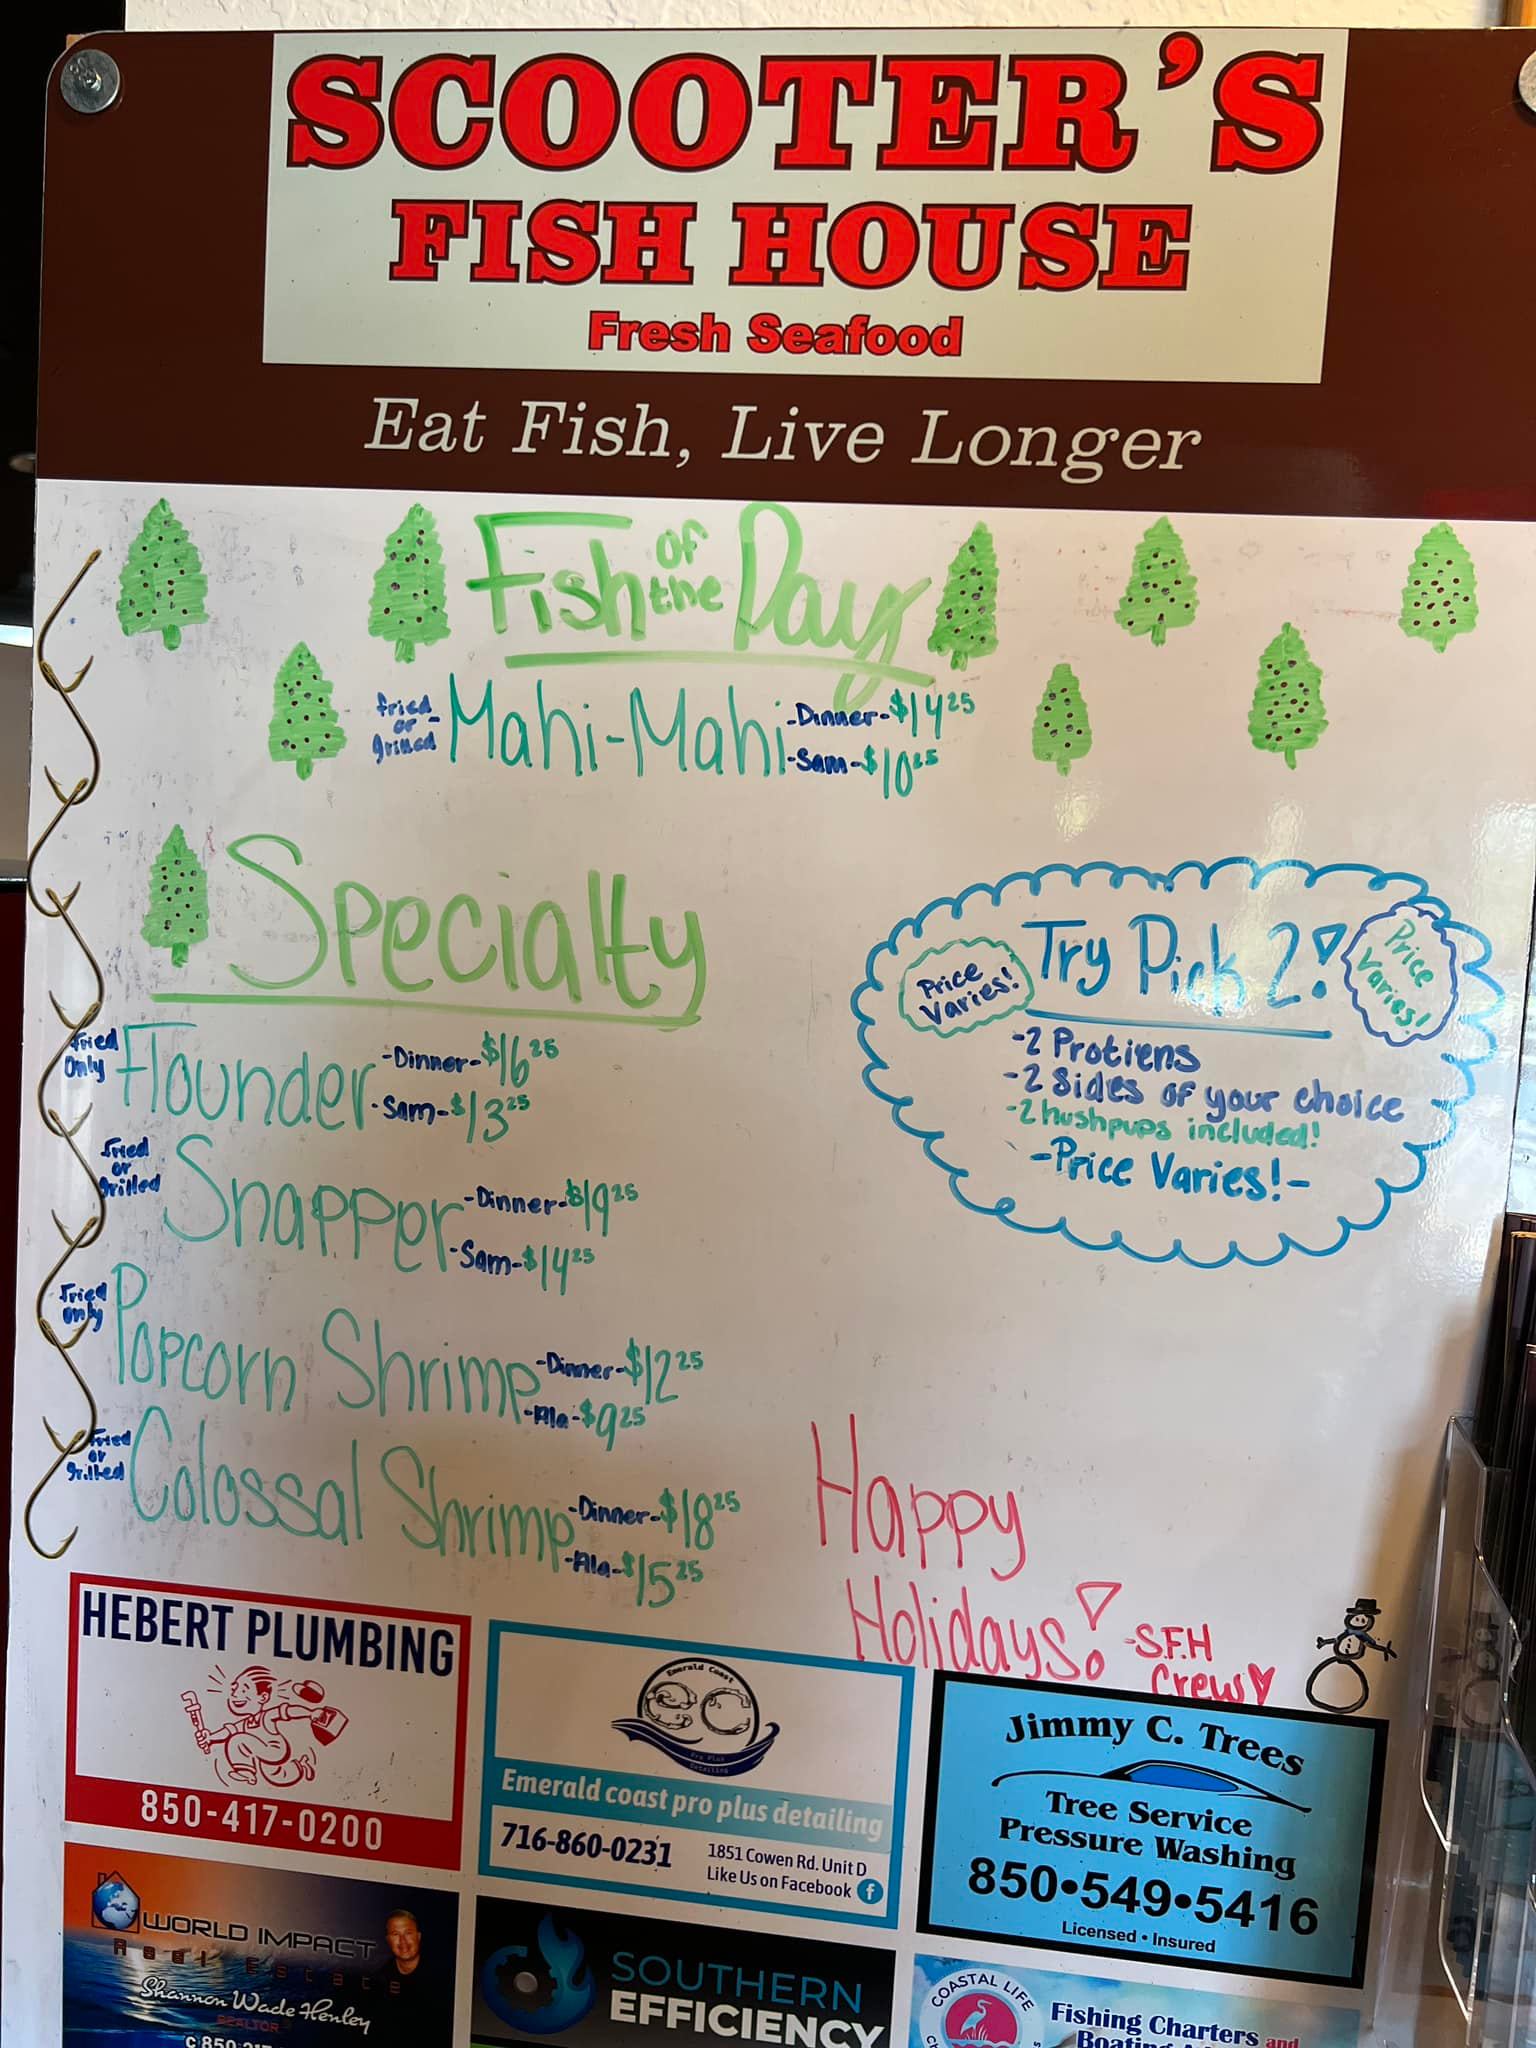 SCOOTER'S
FISH HOUSE
Fresh Seafood
Eat Fish, Live Longer
Fish of the Day
fried or grilled - Mahi-Mahi -Dinner-$14.25
-Sam-$10.25
Specialty
fried only Flounder -Dinner-$16.25
-Sam-$13.25
fried or grilled Snapper -Dinner-$19.25
-Sam-$14.25
fried only Popcorn Shrimp -Dinner-$12.25
-Ala-$9.25
fried or grilled Colossal Shrimp -Dinner-$18.25
-Ala-$15.25
Price Varies!
Try Pick 2!
Price Varies!
-2 Protiens
-2 sides of your choice
-2 hushpups included!
-Price Varies!-
Happy
Holidays!
-S.F.H
Crew
HEBERT PLUMBING
850-417-0200
Emerald Coast
Pro Plus
Detailing
Emerald coast pro plus detailing
716-860-0231
1851 Cowen Rd. Unit D
Like Us on Facebook f
Jimmy C. Trees
Tree Service
Pressure Washing
850•549•5416
Licensed • Insured
WORLD IMPACT
Real Estate
Shannon Wade Henley
REALTOR
SOUTHERN
EFFICIENCY
COASTAL LIFE
Fishing Charters and